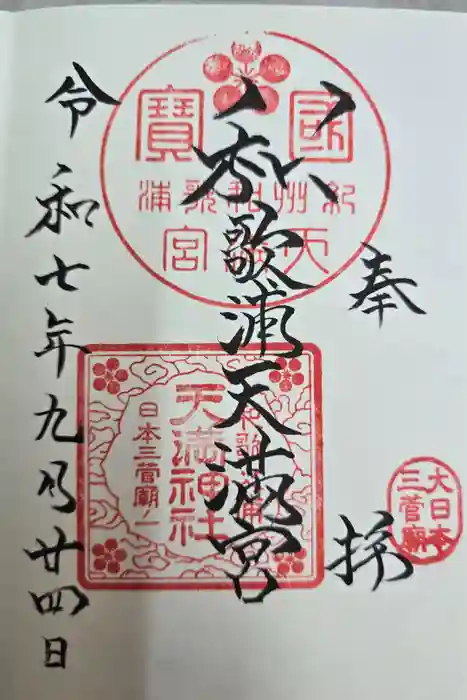 奉拝
大日本
三菅廟
和歌浦天満宮
國寶
紀州和歌浦
天満宮
和歌浦
天満神社
日本三菅廟一
令和七年九月廿四日